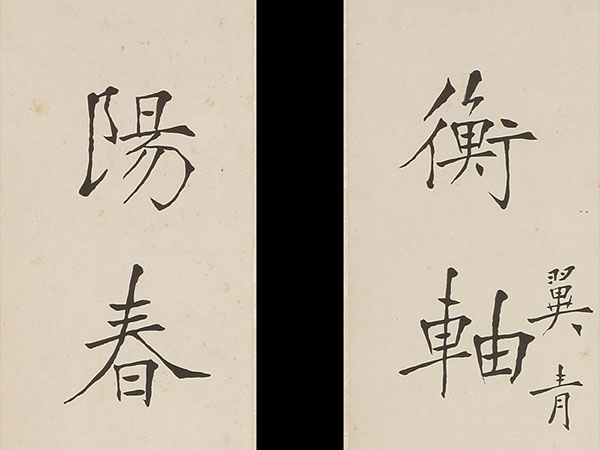 衡軸
翼青
陽春